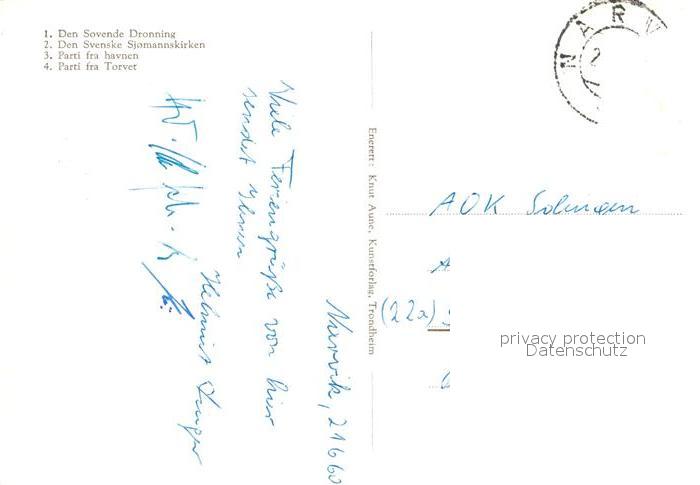 1. Den Sovende Dronning
2. Den Svenske Sjømannskirken
3. Parti fra havnen
4. Parti fra Torvet
NARV
2
Enerett: Knut Aune, Kunstforlag, Trondheim
Narvik, 21660
Viele Feriengrüße von hier
sendet Ihnen
Helmut
AOK Solingen
A
(22a)
privacy protection
Datenschutz